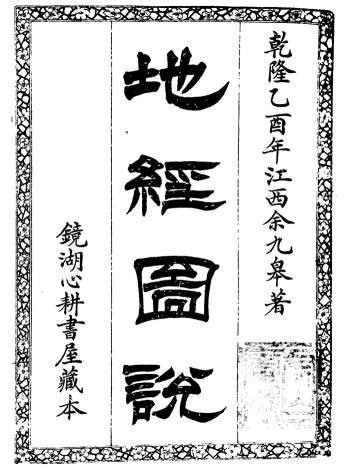 乾隆乙酉年江西余九皋著
地經圖說
鏡湖心耕書屋藏本